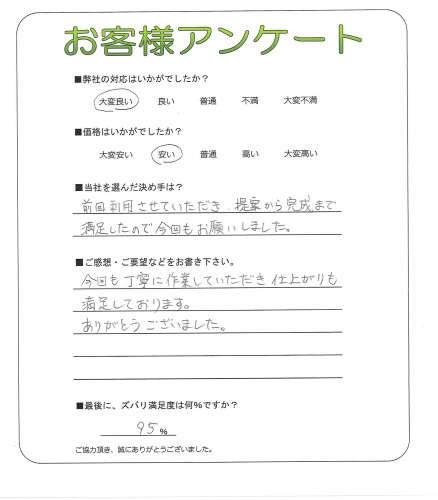 お客様アンケート
■弊社の対応はいかがでしたか？
大変良い 良い 普通 不満 大変不満
■価格はいかがでしたか？
大変安い 安い 普通 高い 大変高い
■当社を選んだ決め手は？
前回利用させていただき、提案から完成まで
満足したので今回もお願いしました。
■ご感想・ご要望などをお書き下さい。
今回も丁寧に作業していただき仕上がりも
満足しております。
ありがとうございました。
■最後に、ズバリ満足度は何%ですか？
95%
ご協力頂き、誠にありがとうございました。